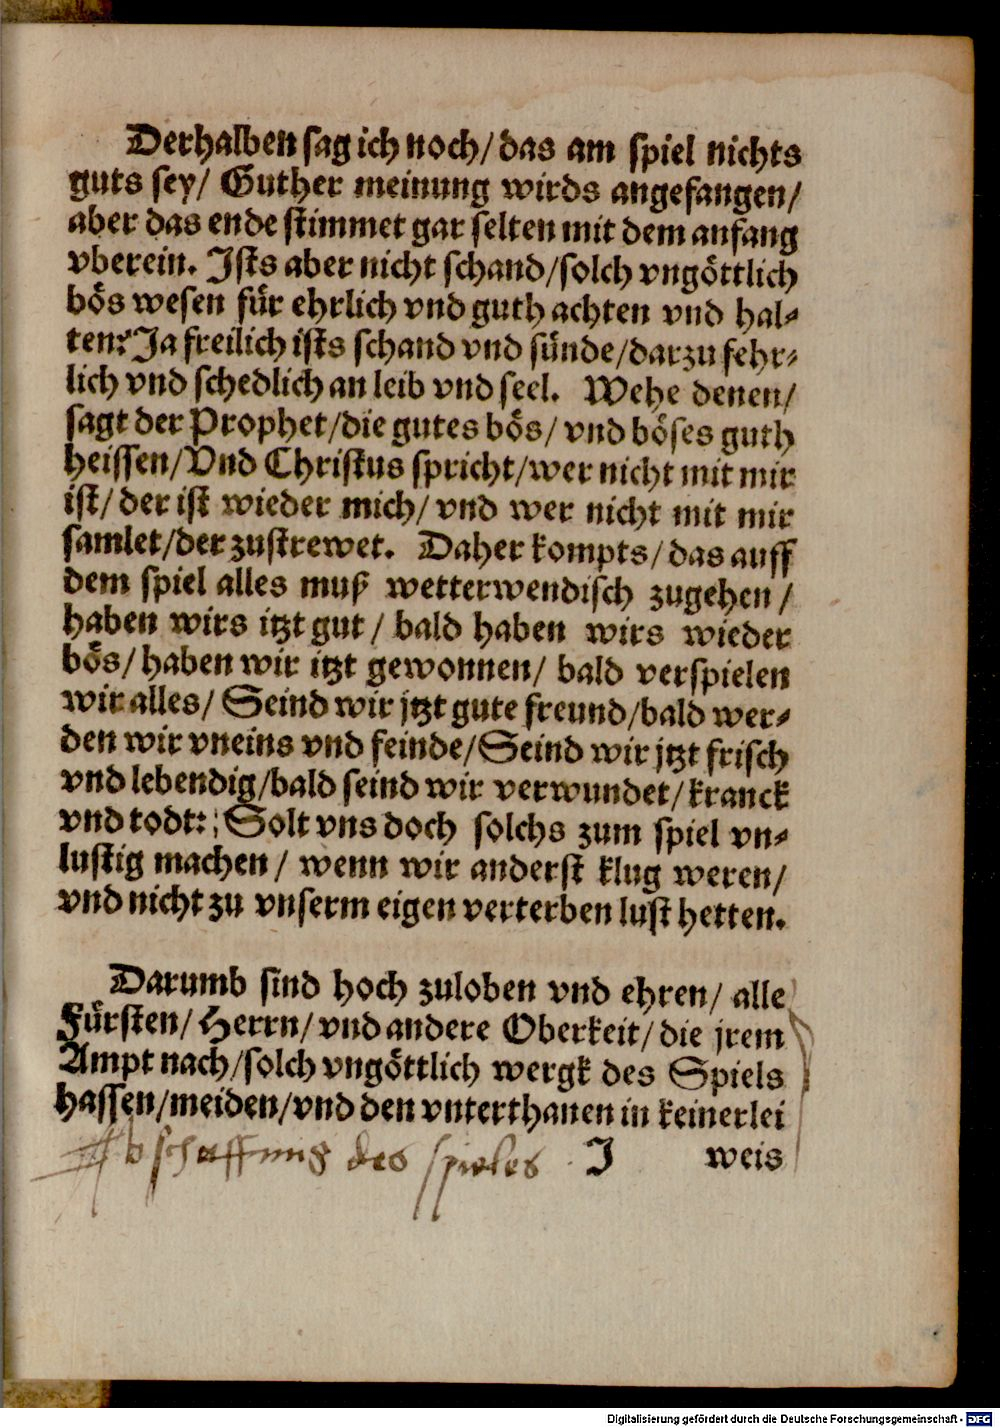 Derhalben sag ich noch/ das am spiel nichts
guts sey/ Guther meinung wirds angefangen/
aber das ende stimmet gar selten mit dem anfang
vberein. Ists aber nicht schand/solch vngöttlich
bös wesen für ehrlich vnd guth achten vnd hal-
ten? Ja freilich ists schand vnd sünde/darzu fehr-
lich vnd schedlich an leib vnd seel. Wehe denen/
sagt der Prophet/die gutes bös/ vnd böses guth
heissen/Vnd Christus spricht/wer nicht mit mir
ist/ der ist wieder mich/ vnd wer nicht mit mir
samlet/der zustrewet. Daher kompts/das auff
dem spiel alles muß wetterwendisch zugehen/
haben wirs itzt gut/ bald haben wirs wieder
bös/ haben wir itzt gewonnen/ bald verspielen
wir alles/ Seind wir jtzt gute freund/bald wer-
den wir vneins vnd feinde/Seind wir jtzt frisch
vnd lebendig/bald seind wir verwundet/kranck
vnd todt: Solt vns doch solchs zum spiel vn-
lustig machen/ wenn wir anderst klug weren/
vnd nicht zu vnserm eigen verterben lust hetten.
Darumb sind hoch zuloben vnd ehren/ alle
Fürsten/ Herrn/ vnd andere Oberkeit/ die jrem
Ampt nach/solch vngöttlich wergk des Spiels
hassen/meiden/vnd den vnterthanen in keinerlei
J weis
Abschaffung des spieles
Digitalisierung gefördert durch die Deutsche Forschungsgemeinschaft - DFG